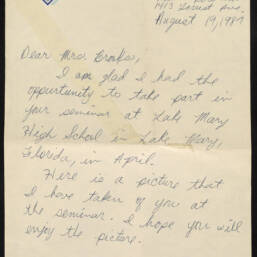 1413 Locust Ave.
August 19, 1987
Dear Mrs. Brooks,
I am glad I had the
oppurtunity to take part in
your seminar at Lake Mary
High School in Lake Mary,
Florida, in April.
Here is a picture that
I have taken of you at
the seminar. I hope you will
enjoy the picture.